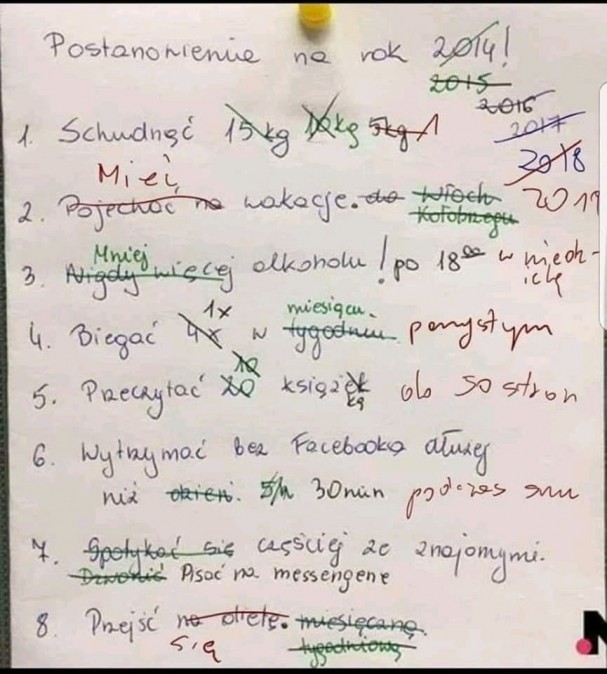 Postanowienie na rok 2014!
2015
2016
2017
2018
2019
1. Schudnąć 15kg 10kg 5kg 1
Mieć
2. Pojechać na wakacje. do Włoch
Kołobrzegu
Mniej
3. Nigdy więcej alkoholu! po 18⁰⁰ w niedzielę
1x miesiącu.
4. Biegać 4x w tygodniu pomysłym
10
5. Przeczytać 20 książek do 50 stron
kę
6. Wytrzymać bez Facebooka dłużej
niż dzień. 5h 30min podczas snu
7. Spotykać się częściej ze znajomymi.
Dzwonić Pisać na messengerze
8. Przejść na dietę. miesięczną.
się tygodniową